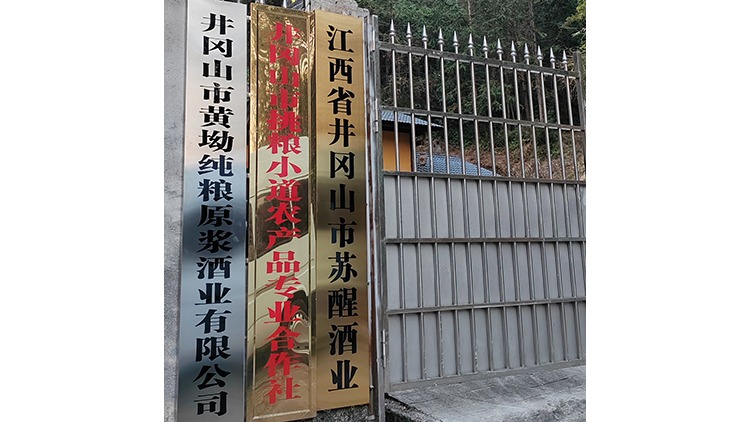 井冈山市黄坳纯粮原浆酒业有限公司
井冈山市挑粮小道农产品专业合作社
江西省井冈山市苏醒酒业